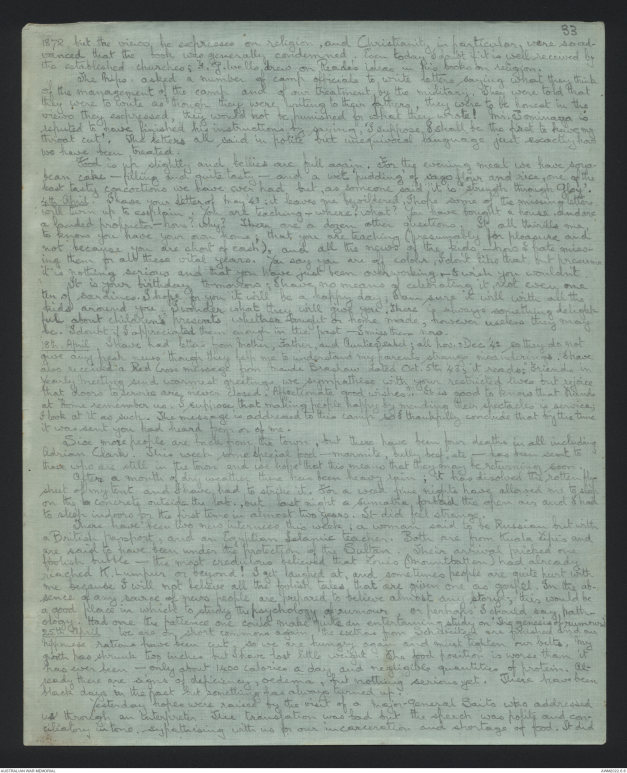 33
1872 but the views he expresses on religion, and Christianity in particular, were so ad-
vanced that the book was generally condemned. Even today I doubt if it is well received by
the established churches;
The Nips asked a number of camp officials to write letters saying what they think
of the management of the camp and of our treatment by the military. They were told that
they were to write as though they were writing to their fathers, they were to be honest in the
views they expressed, they would not be punished for what they wrote! Mr. is
reputed to have finished his instructions by saying, "I suppose I shall be the first to have my
throat cut". The letters all said in polite but unequivocal language just exactly how
we have been treated.
Food is up slightly and bellies are full again. For the evening meal we have soya-
bean cake - filling and quite tasty - and a wet pudding of sago flour and rice, one of the
least tasty concoctions we have ever had but, as someone said it is "strength through
4th April. I have your letter of May 43; it leaves me bewildered. I hope some of the missing letters
will turn up to explain. You are teaching - where? what? You have bought a house and are
a landed proprietor - how? why? There are a dozen other questions. It all thrills me,
to know you have your own home, that you are teaching (presumably for pleasure and
not because you are short of cash), and all the news of the kids - how I hate miss-
ing them for all these vital years. You say you are off colour, I don't like that but presume
it is nothing serious and that you have just been overworking - I wish you wouldn't.
It is your birthday tomorrow; I have no means of celebrating it, not even one
tin of sardines. I hope for you it will be a happy day, I am sure it will with all the
kids around you. I wonder what they will give you. There is always something delight-
ful about children's presents whether bought or home made, however useless they may
be. I doubt if I appreciated them enough in the past - I miss them now.
18th April. I have had letters from Mother, Father, and all has Dec 42 so they do not
give any fresh news though they help me to understand my parents' strange meanderings. I have
also received a Red Cross message from Maude Bradshaw dated Oct. 5th 43; it reads, "Friends in
yearly meeting send warmest greetings, we sympathise with your restricted lives but rejoice
that doors to service are never closed. Affectionate good wishes." It is good to know that friends
at home remember us. I suppose that making people happy by mending their spectacles is service;
I look at it as such. The message is addressed to this camp so I thankfully conclude that by the time
it was sent you had heard from or of me.
Six more people are back from the town, but there have been four deaths in all including
Adrian Clark. This week some special food - marmite, bully beef, etc - has been sent to
those who are still in the town and we hope that this means that they may be returning soon.
After a month of dry weather there has been heavy rain; it has dissolved the rotten fly-
sheet of my tent and I have had to strike it. For a week fine nights have allowed me to sleep
on the concrete outside the hut, but last night a sumatra forbad the open air and I had
to sleep indoors for the first time in almost two years. It did feel strange.
There have been two new internees this week; a woman said to be Russian but with
a British passport, and an Egyptian Islamic teacher. Both are from Kuala Lipis and
are said to have been under the protection of the Sultan. Their arrival pricked one
foolish bubble - the most credulous believed that Louis (Mountbatten) had already
reached K. Lumpur or beyond! I get laughed at, and sometimes people are quite hurt with
me because I will not believe all the foolish tales that are given one as gospel. In the ab-
sence of any source of news people are prepared to believe almost any story; this would be
a good place in which to study the psychology of rumours - or perhaps I should say, path-
ology. Had one the patience one could make quite an entertaining study on "The genesis of rumours".
25th April. We are on short commons again, the extras from are finished and our
nipponese rations have been cut so we are hungry and must tighten our belts. My
girth has shrunk two inches but I have lost little weight. The food position is worse than it
has ever been - only about 1400 calories a day and negligible quantities of protein. Al-
ready there are signs of deficiency, oedema, but nothing serious yet. There have been
black days in the past but something has always turned up.
Yesterday hopes were raised by the visit of a Major-General Saito who addressed
us through an interpreter. The translation was bad but the speech was polite and con-
ciliatory in tone, sympathising with us for our incarceration and shortage of food. It did
AUSTRALIAN WAR MEMORIAL